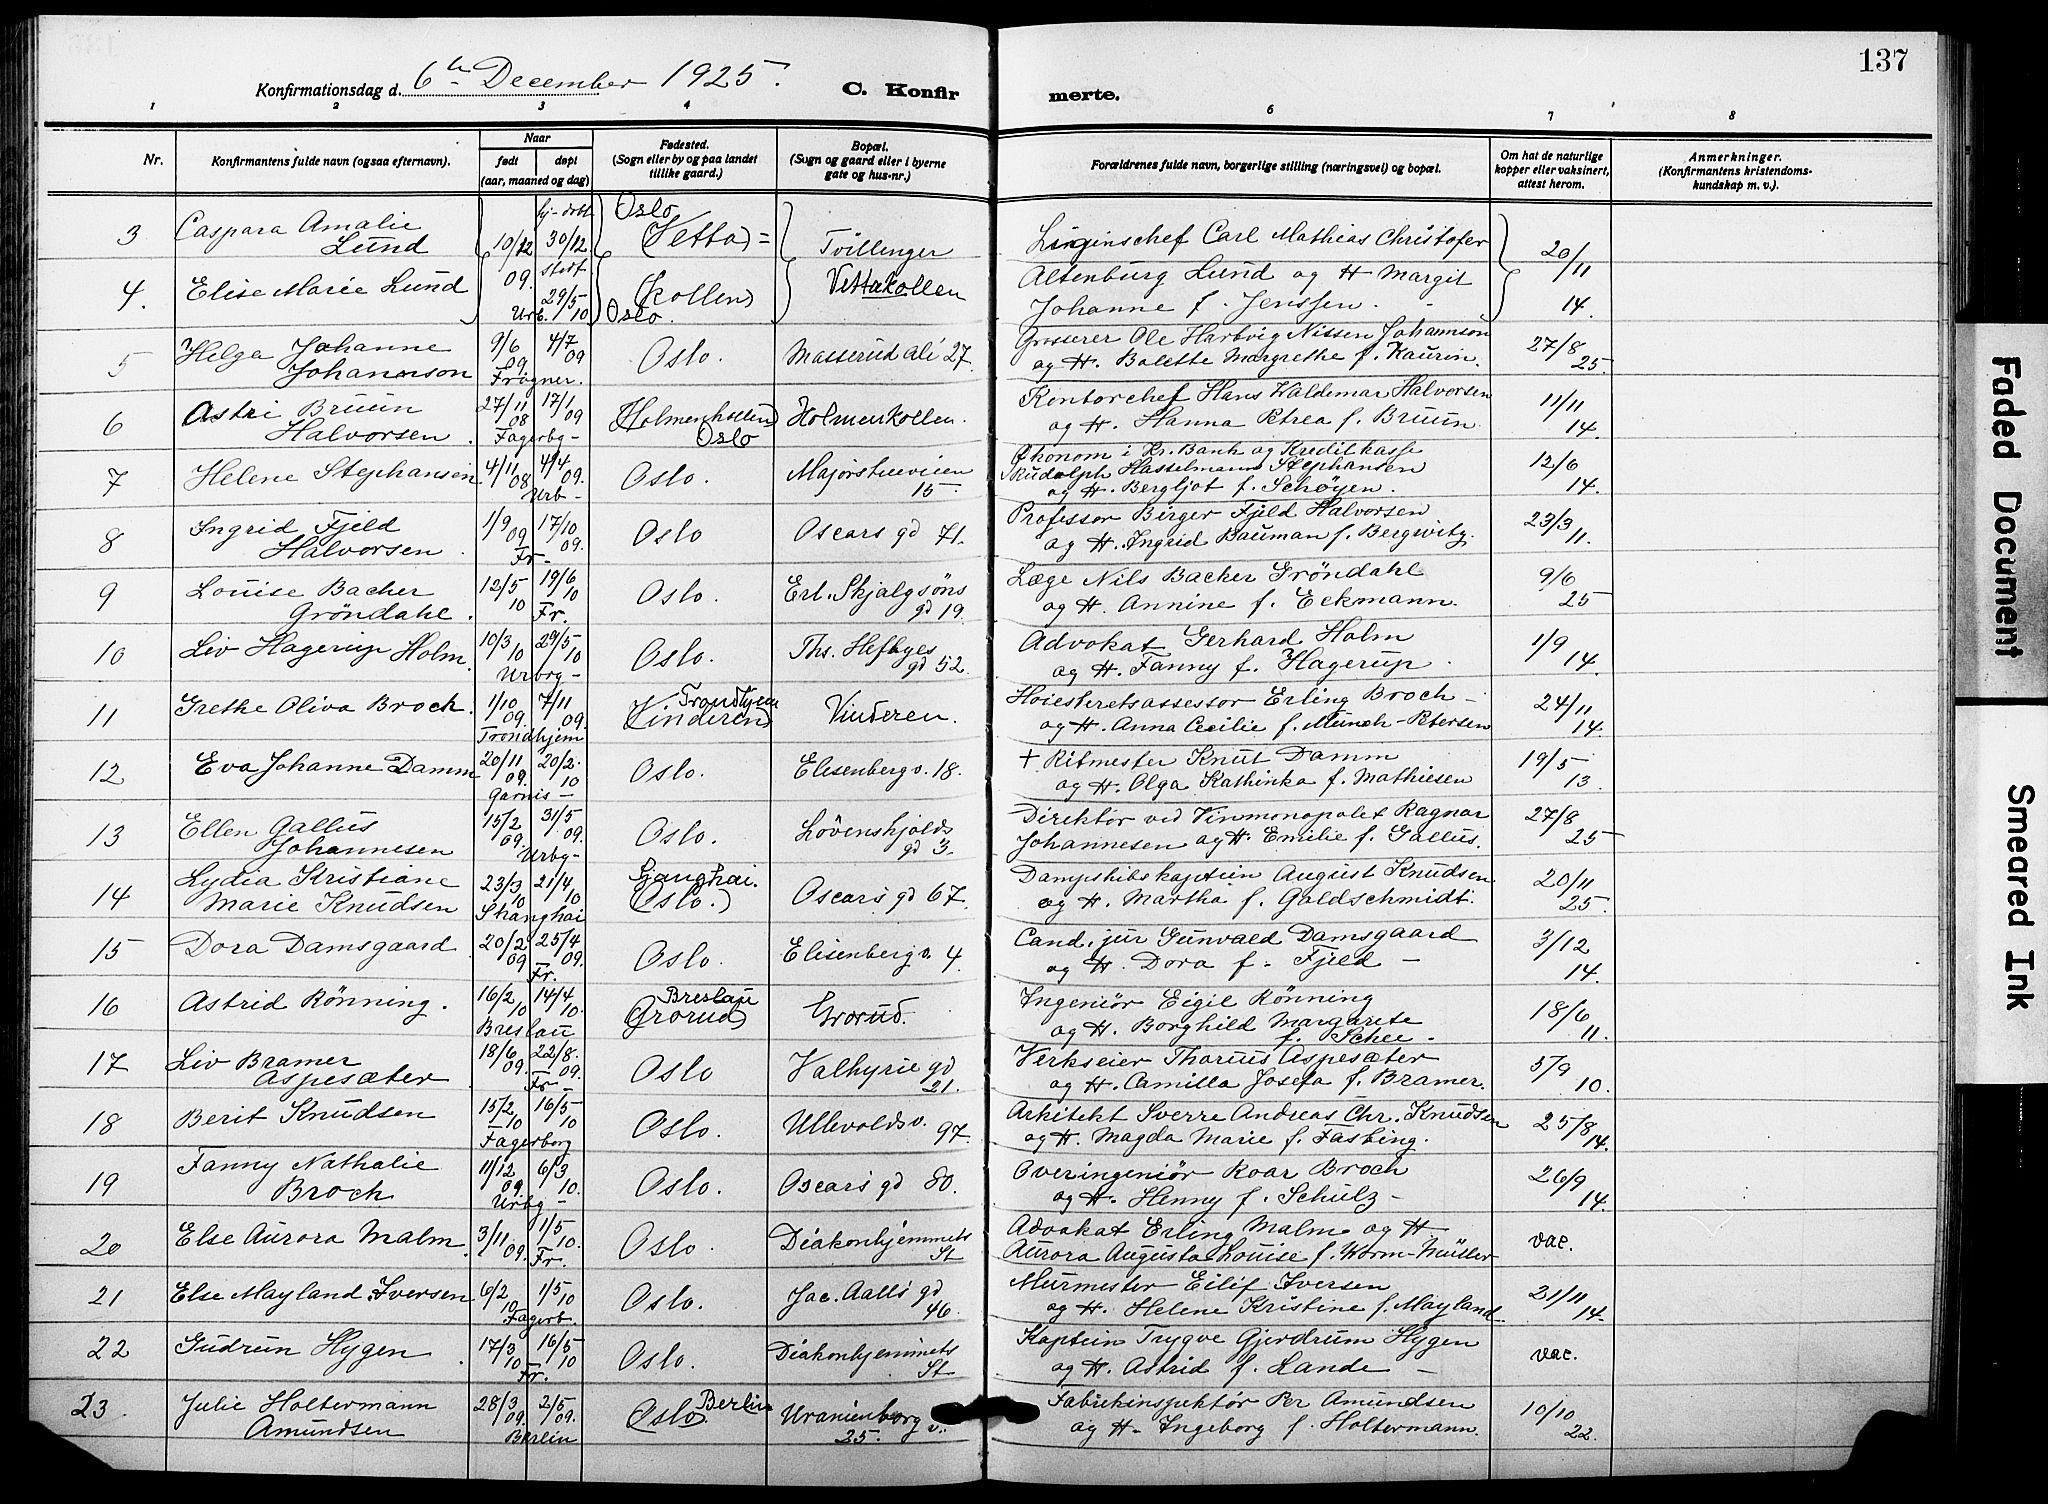 137
Konfirmationsdag d. 6te December 1925.
C. Konfir merte.
1 2 3 4 6 7 8
Nr.
Konfirmantens fulde navn (ogsaa efternavn).
Naar
født døpt
(aar, maaned og dag)
Fødested.
(Sogn eller by og paa landet
tillike gaard.)
Bopæl.
(Sogn og gaard eller i byerne
gate og hus-nr.)
Forældrenes fulde navn, borgerlige stilling (næringsvei) og bopæl.
Om hat de naturlige
kopper eller vaksinert,
attest herom.
Anmerkninger.
(Konfirmantens kristendoms-
kundskap m. v.).
3 Caspara Amalie Lund 10/12 09. hj-døbt 30/12 Oslo (Vetta= Tvillinger Vettakollen
4. Elise Marie Lund stedt 29/5 10 Urb. kollen) Oslo.
Carl Mathias Christofer
Altenburg Lund og H Margit
Johanne f. Jenssen. 20/11 14.
5 Helga Johanne Johannson 9/6 09. 4/7 09 Frogner. Oslo. Masserud alé 27
Grosserer Ole Hartvig Nissen Johannson
og H. Bolette Margrethe f. Kaurin. 27/8 25.
6 Astri Bruun Halvorsen. 27/11 08 17/1 09 Fagerbg- (Holmenkollen) Oslo Holmenkollen.
Kontorchef Hans Waldemar Halvorsen
og H. Hanna Petrea f. Bruun 11/11 14.
7 Helene Stephansen 4/11 08 4/4 09. Urb- Oslo. Majorstueveien 15.
Økonom i Kr. Bank og Kreditkasse
Rudolph Hasselmann Stephansen
og H. Bergljot f. Schøyen. 12/6 14.
8 Ingrid Fjeld Halvorsen. 1/9 09. 17/10 09. Fr- Oslo Oscars gd 71.
Professor Birger Fjeld Halvorsen
og H. Ingrid Bauman f. Bergwitz. 23/3 11.
9 Louise Backer Gröndahl. 12/5 10 19/6 10 Fr. Oslo. Erl. Skjalgsøns gd 19.
Læge Nils Backer Gröndahl
og H. Annine f. Eckmann. 9/6 25
10 Liv Hagerup Holm. 10/3 10 29/5 10 Urbrg- Oslo. Ths. Heftyes gd 52.
Advokat Gerhard Holm
og H. Fanny f. Hagerup. 1/9 14.
11 Grethe Oliva Broch. 1/10 09. 7/11 09. Trondhjem Trondhjem (Vinderen) Vinderen.
Høiesteretsassessor Erling Broch-
og H. Anna Cecilie f. Munch-Petersen 24/11 14.
12 Eva Johanne Damm 20/11 09. 20/2. 10 Garnis- Oslo. Elisenberg v. 18.
+ Ritmester Knut Damm
og H. Olga Kathinka f. Mathiesen 19/5 13.
13 Ellen Gallus Johannesen 15/2 09. 31/5 09. Urbg- Oslo. Løvenskjolds gd 3.
Direktör ved Vinmonopolet Ragnar
Johannesen og H. Emilie f. Gallus. 27/8 25
14 Lydia Kristiane Marie Knudsen 23/3 10 21/4 10 Shanghai Sjanghai. (Oslo.) Oscars gd 67.
Dampskibskaptein August Knudsen.
og H. Martha f. Goldschmidt. 20/11 25.
15 Dora Damsgaard. 20/2 09 25/4 09. Fr. Oslo. Elisenberg v. 4.
Cand. jur Gunvald Damsgaard
og H. Dora f. Fjeld - 3/12 14.
16 Astrid Rönning. 16/2 10 14/4 10. Breslau Breslau (Grorud) Grorud.
Ingeniör Eigil Rönning
og H. Borghild Margarete
f. Schee. 18/6 11.
17 Liv Bramer Aspesæter 18/6 09. 22/8. 09. Fr- Oslo Valkyrie gd 21.
Verkseier Thorius Aspesæter
og H. Camilla Josefa f. Bramer. 5/9 10.
18 Berit Knudsen 15/2 10 16/5- 10 Fagerborg Oslo. Ullevolds v. 97.
Arkitekt Sverre Andreas Chr. Knudsen
og H. Magda Marie f. Fasting. 25/8 14.
19 Fanny Nathalie Broch 11/12 09. 6/3 10. Urbg- Oslo. Oscars gd 80.
Overingeniör Roar Broch
og H. Henny f. Schulz- 26/9 14.
20 Else Aurora Malm. 3/11 09. 1/5 10. Fr. Oslo. Diakonhjemmets St
Advokat Erling Malm og H.
Aurora Augusta Louise f. Worm-Müller vac.
21 Else Mayland Iversen 6/2 10. 1/5 10 Fagerb. Oslo. Jac. Aalls gd 46.
Murmester Eilif Iversen
og H. Helene Kristine f. Mayland. 21/11 14.
22 Gudrun Hygen. 17/3 10 16/5 10 Fr. Oslo. Diakonhjemmets St
Kaptein Trygve Gjerdrum Hygen
og H. Astrid f. Lande - vac.
23 Julie Holtermann Amundsen 28/3 09. 2/5 09. Berlin Oslo Berlin Uranienborg v. 25.
Fabrikinspektör Per Amundsen
og H. Ingeborg f Holtermann. 10/10 22.
Faded Document
Smeared Ink